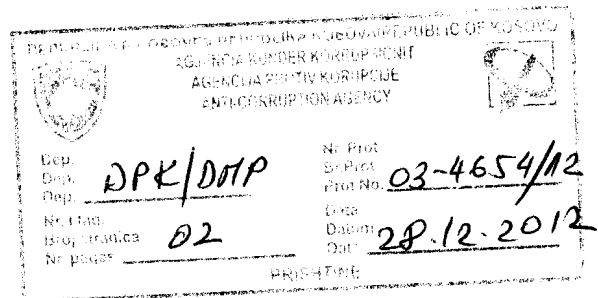 REPUBLIKA E KOSOVËS REPUBLIKA KOSOVA REPUBLIC OF KOSOVO
AGJENCIA KUNDER KORRUPCIONIT
AGENCIJA PROTIV KORUPCIJE
ANTI-CORRUPTION AGENCY
Dep.
Dep.
Dep. DPK/DMP
Nr. Prot
Br. Prot
Prot No. 03-4654/12
Broj stranica 02
Nr. pages
Data
Datum
Date 28.12.2012
PRISHTINE